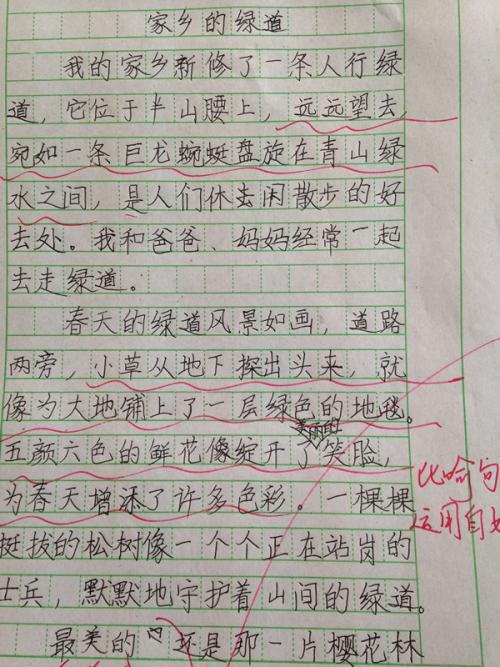 家乡的绿道
我的家乡新修了一条人行绿
道，它位于半山腰上，远远望去，
宛如一条巨龙蜿蜒盘旋在青山绿
水之间，是人们休闲散步的好
去处。我和爸爸、妈妈经常一起
去走绿道。
春天的绿道风景如画，道路
两旁，小草从地下探出头来，就
像为大地铺上了一层绿色的地毯。
美丽的
五颜六色的鲜花像绽开了笑脸，
为春天增添了许多色彩。一棵棵
挺拔的松树像一个个正在站岗的
士兵，默默地守护着山间的绿道。
最美的 还是那一片樱花林
比喻句
运用自如